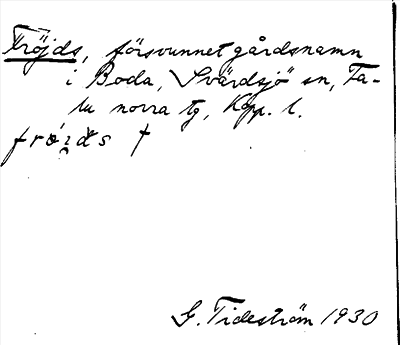 Fröjds, försvunnet gårdsnamn
i Boda, Svärdsjö sn, Fa-
lu norra tg, Kopp. l.
†
G. Tideström 1930